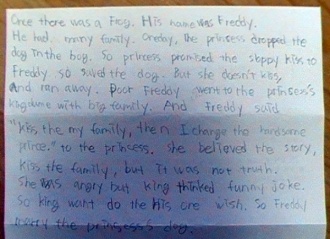 Once there was a Frog. His name was Freddy.
He had many family. Oneday, the princess dropped the
dog in the bog. So princess promised the sloppy kiss to
Freddy so saved the dog. But she doesn't kiss,
And ran away. Poor Freddy went to the prinsess's
kingdume with big family. And Freddy said
"kiss the my family, then I change the handsome
prince." to the princess. she believed the story,
kiss the family, but it was not truth.
She was angry but king thinked funny joke.
So king want do the his one wish. So Freddy
marry the prinsgess's dog.